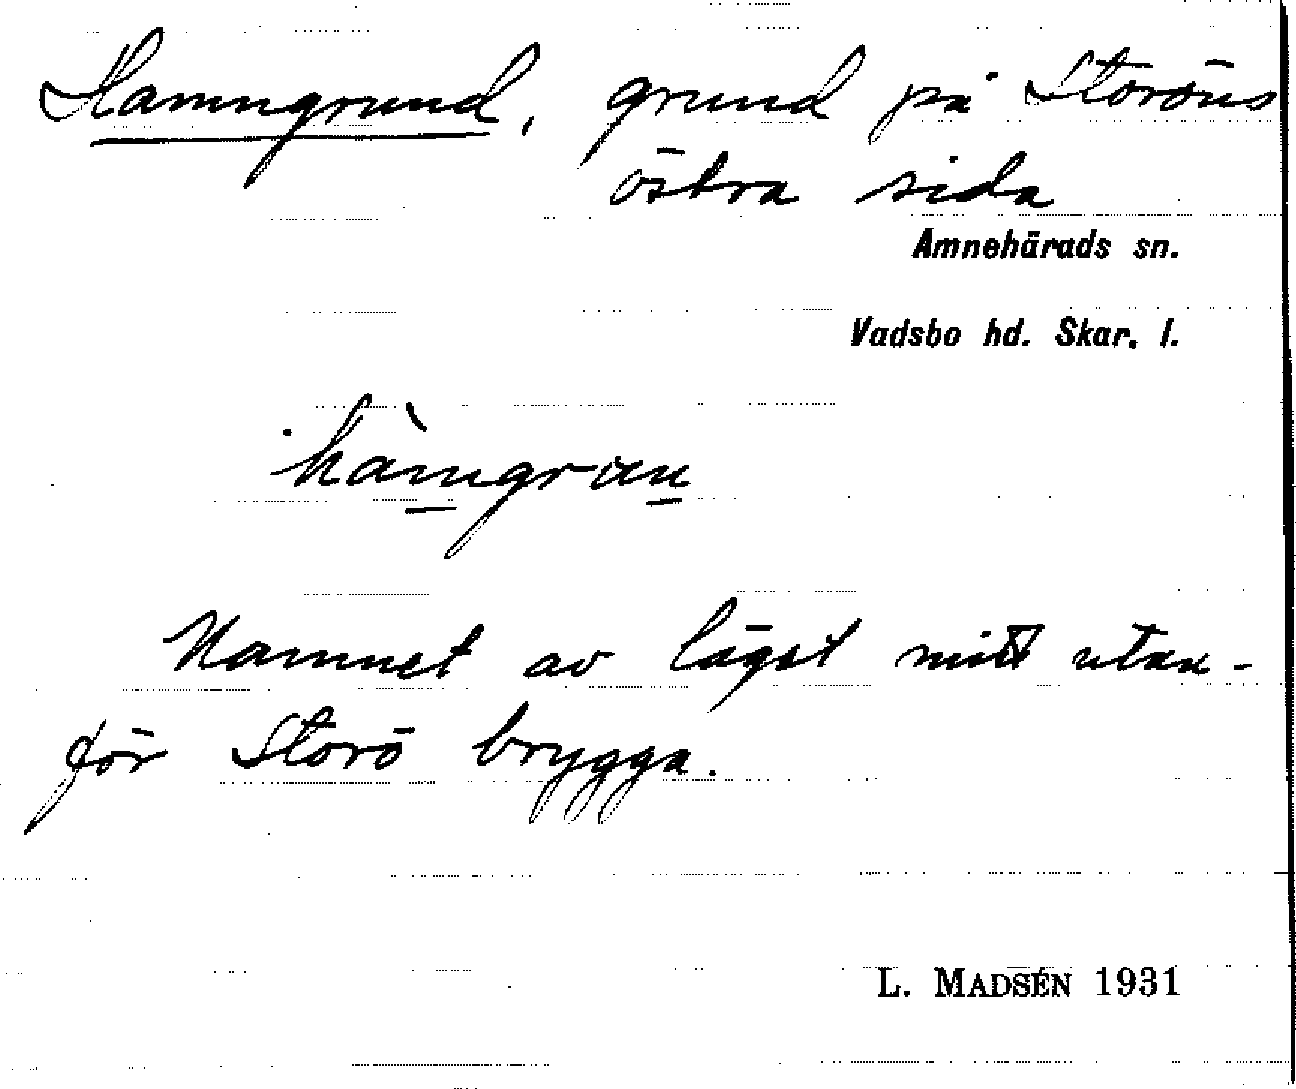 Hamngrund, grund på Storöns
östra sida
Amnehärads sn.
Vadsbo hd. Skar. l.
Namnet av läget mitt utan-
för Storö brygga.
L. MADSÉN 1931